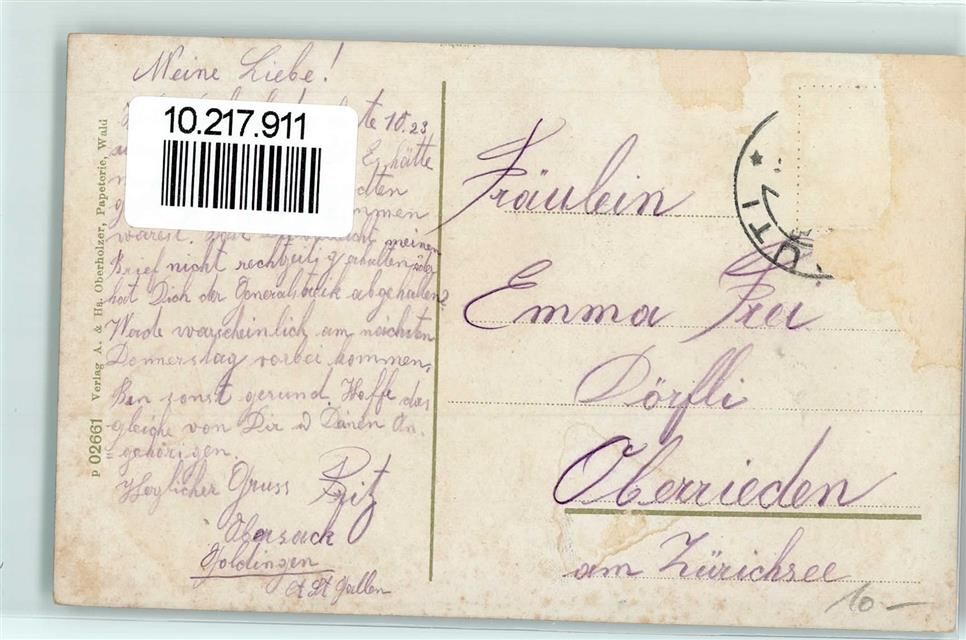 Meine Liebe!
10.217.911
te 10.23
Es hätte
dten
mmen
warest. meinen
Brief nicht rechtzeitig erhalten oder
hat Dich der Generalstreik abgehalten?
Werde warscheinlich am nächsten
Donnerstag vorbei kommen.
Bin sonst gesund. Hoffe das
gleiche von Dir u Deinen An-
"gehörigen.
Herzlicher Gruss Fritz
Obersack
Goldingen
Ct St Gallen
Fräulein
Emma Frei
Dörfli
Oberrieden
am Zürichsee
ÜTI
10.–
P 02661 Verlag A. & Ha. Oberholzer, Papeterie, Wald